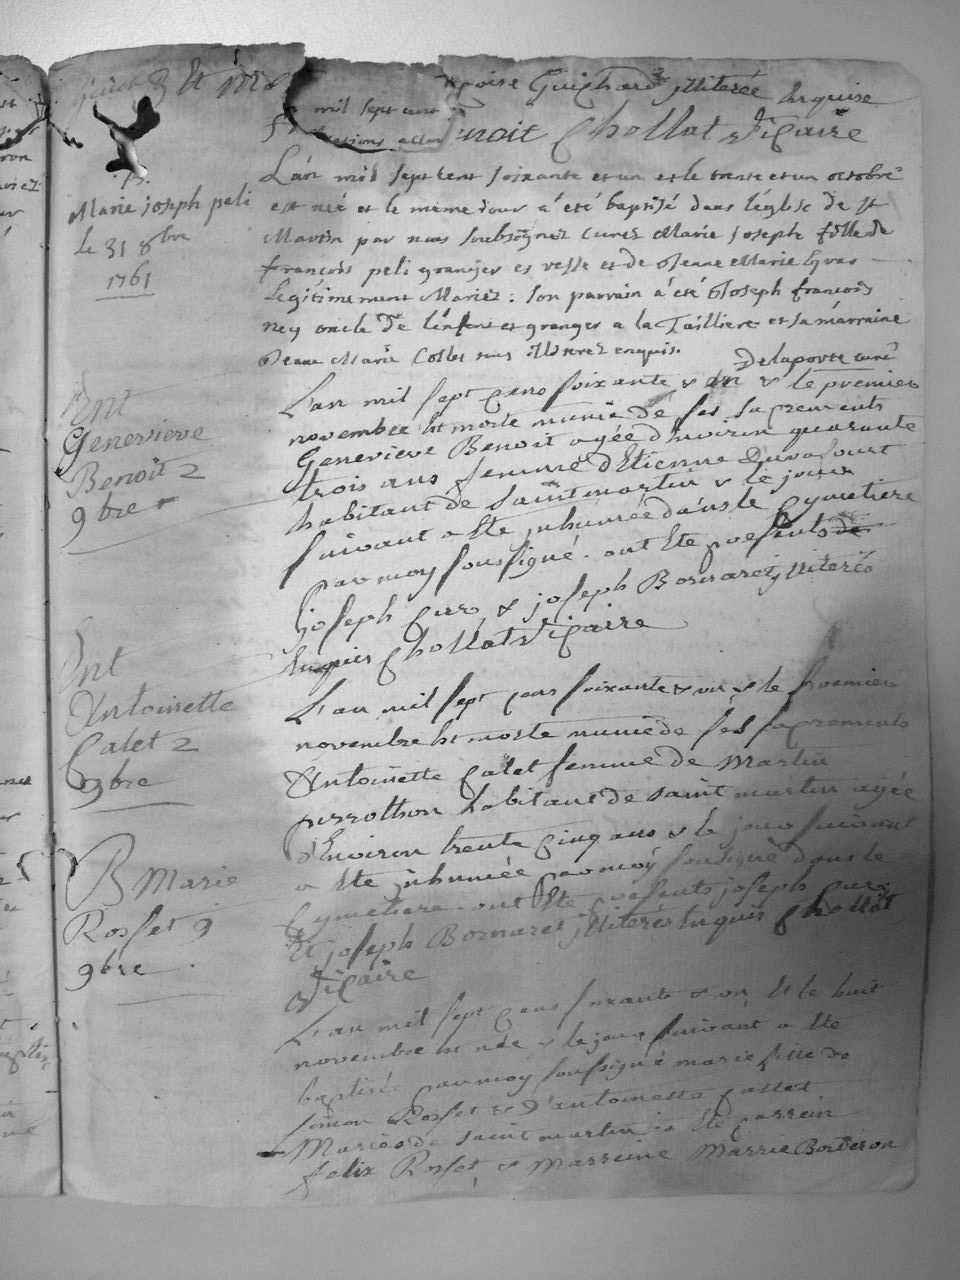 Guichard illiterée Enquise
mil sept cent
Chollat Vicaire
B.
Marie joseph peli
le 31 8bre
1761
L'an mil sept cent soixante et un et le trente et un octobre
est née et le même jour a été baptisé dans l'église de st
Martin par nous soubsignez curez Marie Joseph fille de
françois peli granger es et de Jeanne Marie
Legitimement Mariez : son parrain a été Joseph françois
ney oncle de l'enfant et granger a la Tailliere et sa marraine
Jeane Marie Collet illiterez enquis.
Delaporte curé
Ent
Genevieve
Benoit 2
9bre
L'an mil sept cens soixante & un & le premier
novembre Est morte munie de ses sacrements
Genevieve Benoit agée d'Environ quarante
trois ans femme d'Etienne
habitant de saint martin & le jour
suivant a Ete inhumée dans le cymetiere
par moy soussigné. ont Ete presents
joseph & joseph Bornaret illiterés
Enquis Chollat Vicaire
Ent
Antoinette
Calet 2
9bre
L'an mil sept cens soixante & un & le premier
novembre Est morte munie de ses sacrements
Antoinette Calet femme de Martin
perrothon habitant de saint martin agée
d'Environ trente cinq ans & le jour suivant
a Ete inhumée par moy soussigné dans le
Cymetiere. ont Ete presents joseph
Et joseph Bornaret illiterés Enquis Chollat
Vicaire
B Marie
Rosset 9
9bre
L'an mil sept cens soixante & un Et le huit
novembre Est née & le jour suivant a Ete
baptisée par moy soussigné marie fille de
simon Rosset & d'antoinette
Mariés de saint martin a Ete parrein
felix Rosset & Marreine Marrie Borderon